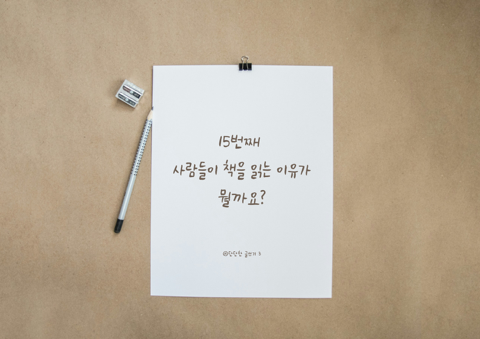 15번째
사람들이 책을 읽는 이유가
뭘까요?
@단단한 글쓰기 3